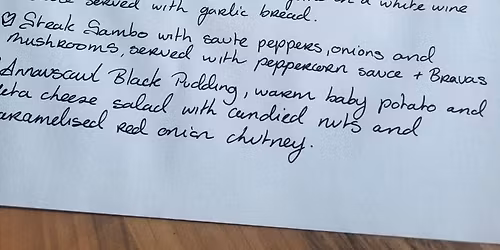 in a white wine
served with garlic bread.
Steak Sambo with saute peppers, onions and
mushrooms, served with peppercorn sauce + Bravas
Annascaul Black Pudding, warm baby potato and
feta cheese salad with candied nuts and
caramelised red onion chutney.